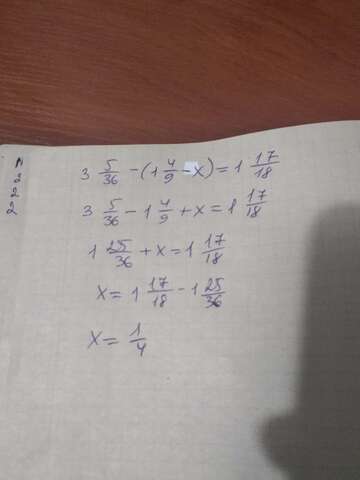 3 5/36 - (1 4/9 - x) = 1 17/18
3 5/36 - 1 4/9 + x = 1 17/18
1 25/36 + x = 1 17/18
x = 1 17/18 - 1 25/36
x = 1/4